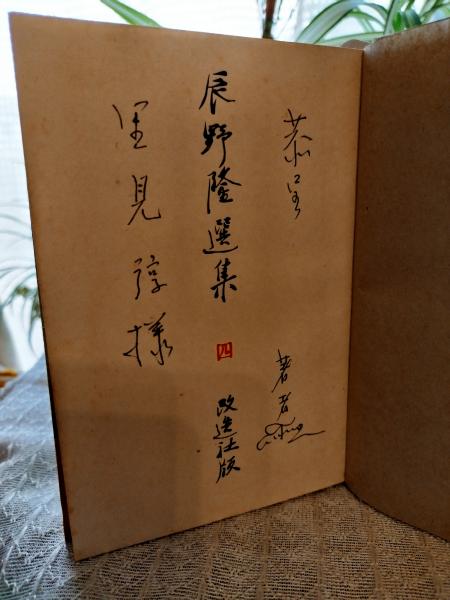 恭呈
著者
辰野隆選集
四
改造社版
里見弴様